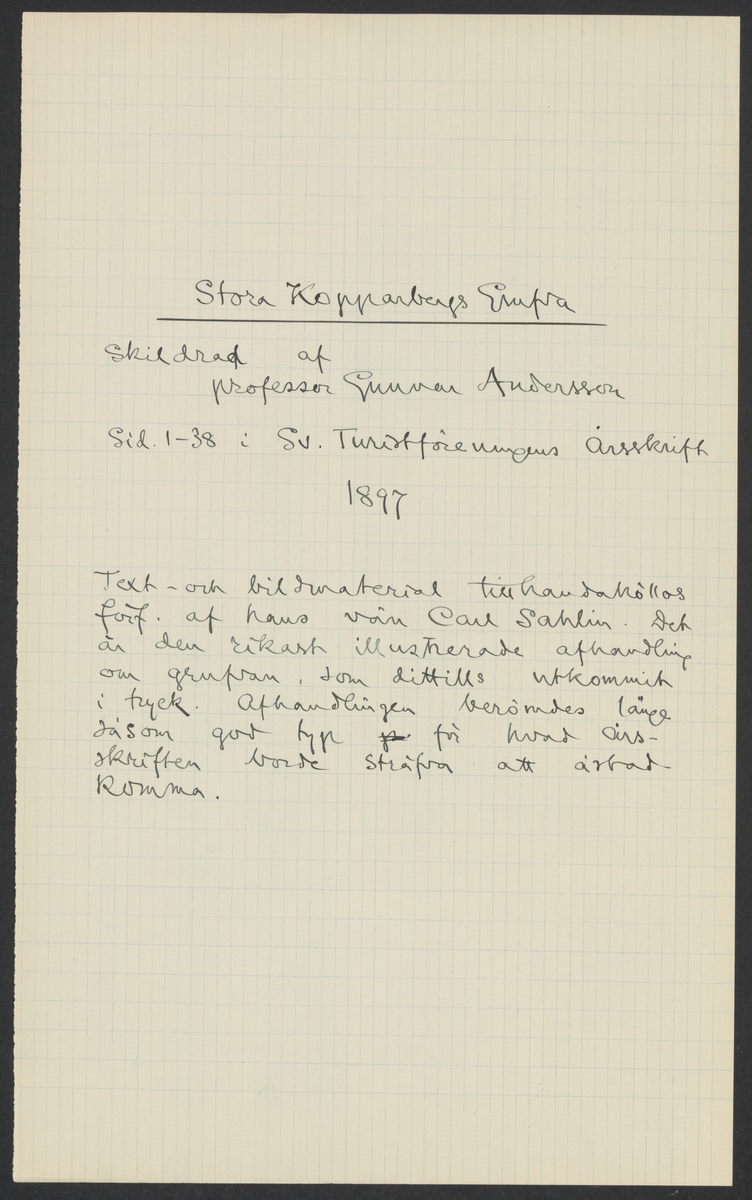 Stora Kopparbergs Grufva
Skildrad af
professor Gunnar Andersson
Sid. 1-38 i Sv. Turistföreningens Årsskrift
1897
Text- och bildmaterial tillhandahöllos
förf. af hans vän Carl Sahlin. Det
är den rikast illustrerade afhandling
om grufvan, som dittills utkommit
i tryck. Afhandlingen berömdes länge
såsom god typ för hvad års-
skriften borde sträfva att åstad-
komma.